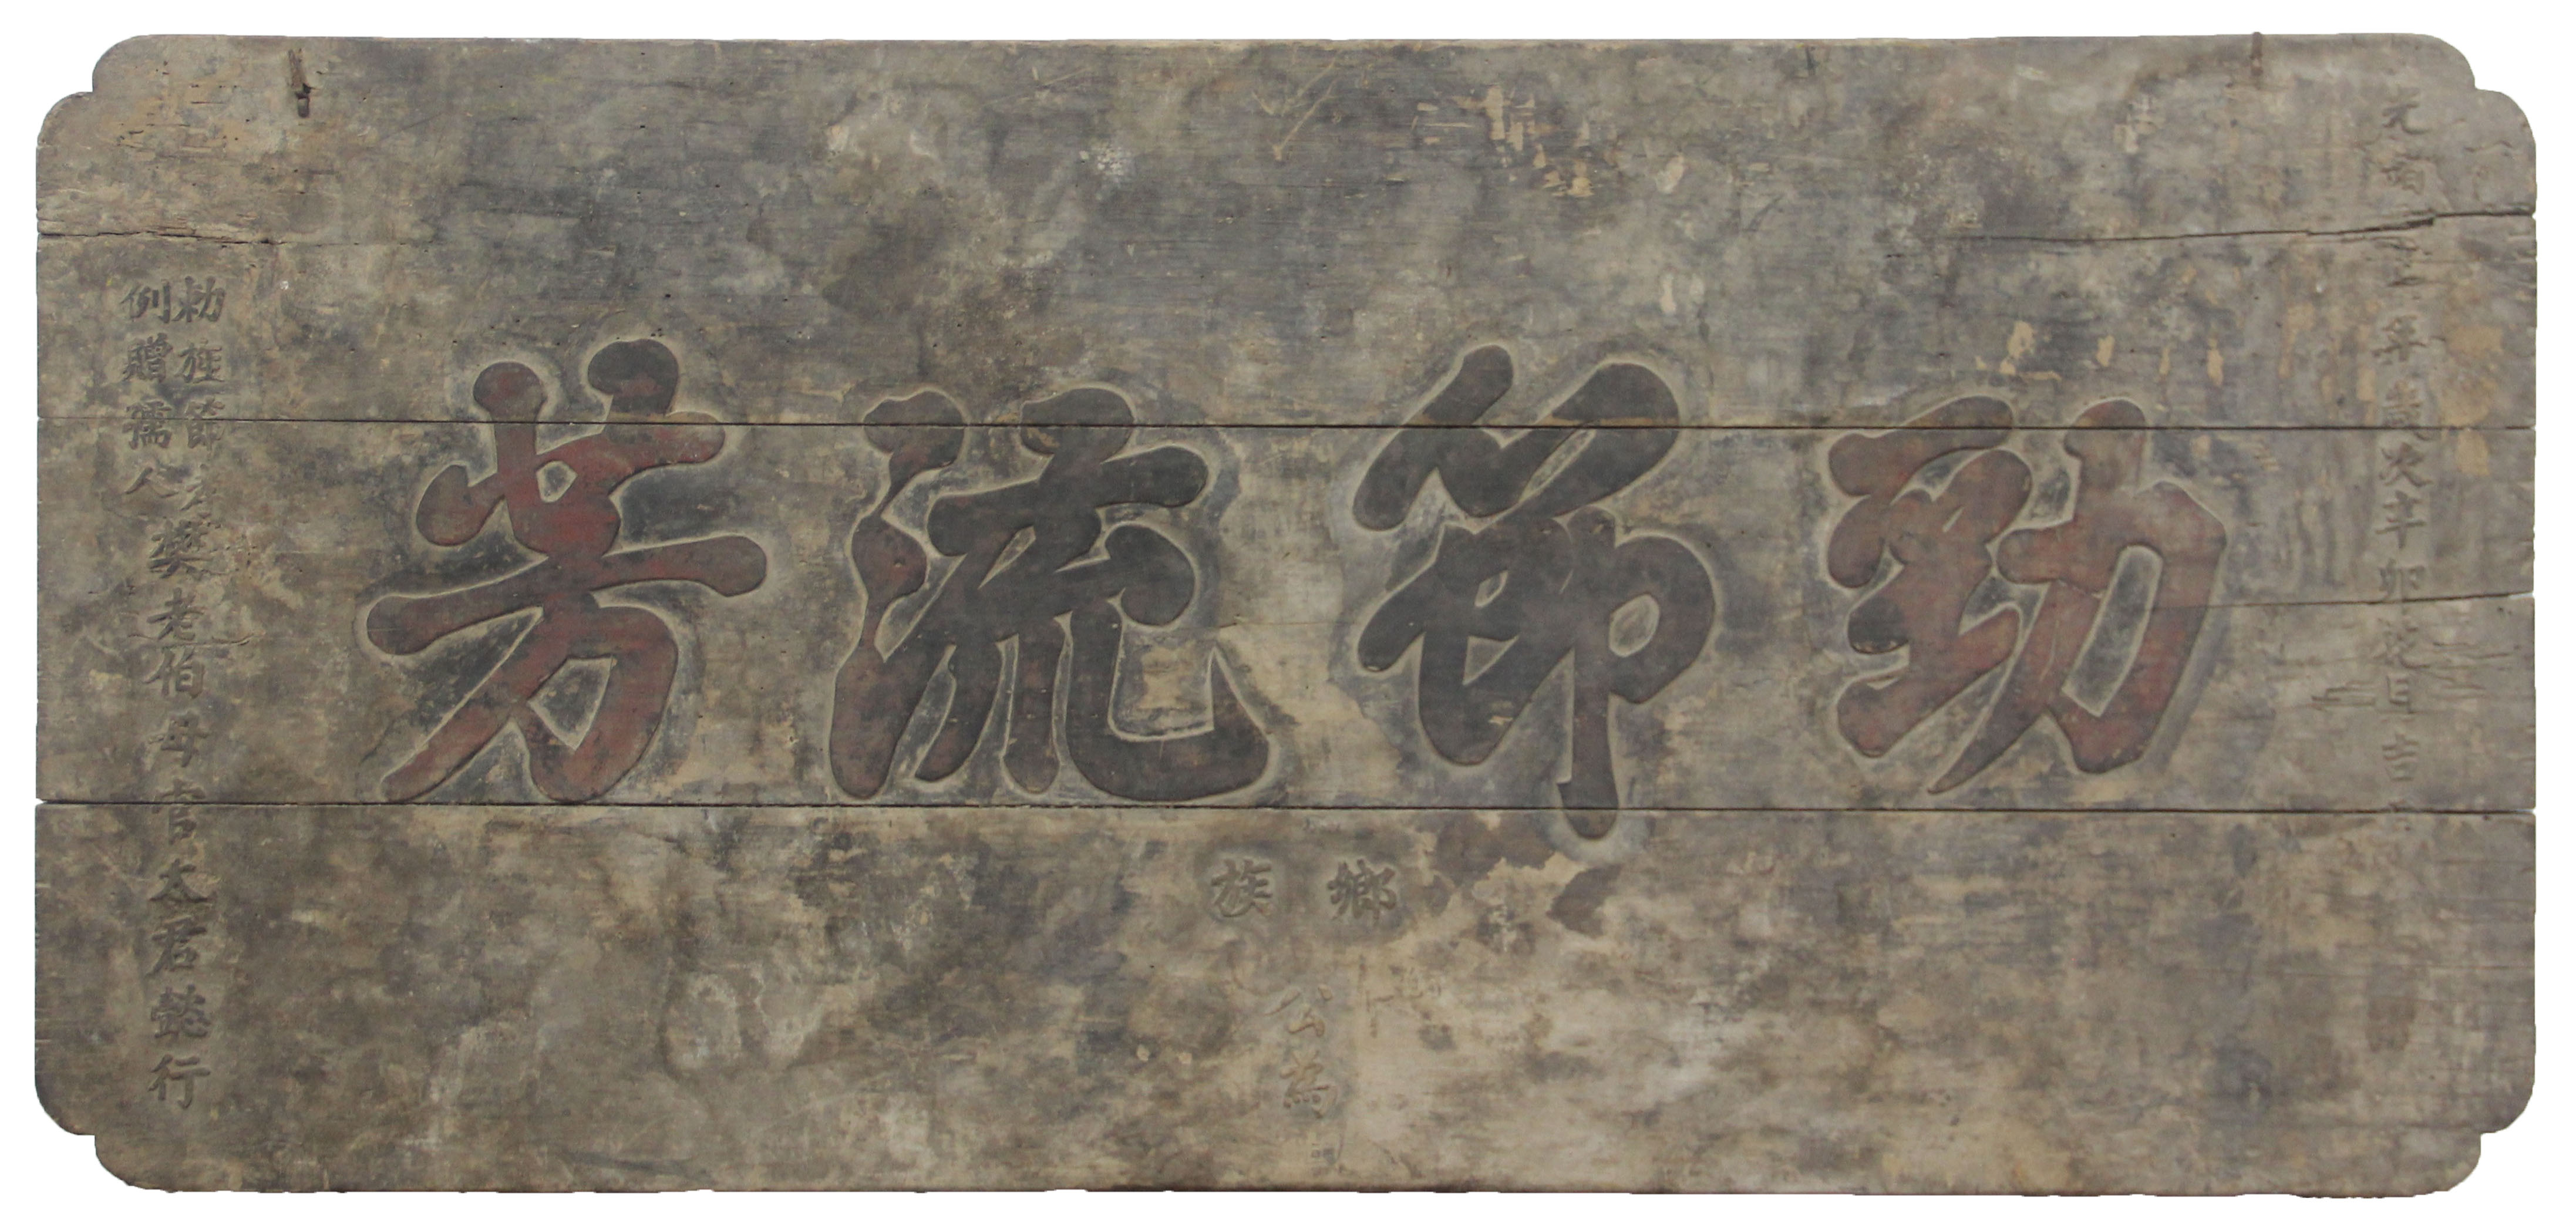 光緒年歲次辛卯花月吉
勁節流芳
鄉族
公為
勅旌節孝
例贈孺人
樊老伯母官太君懿行